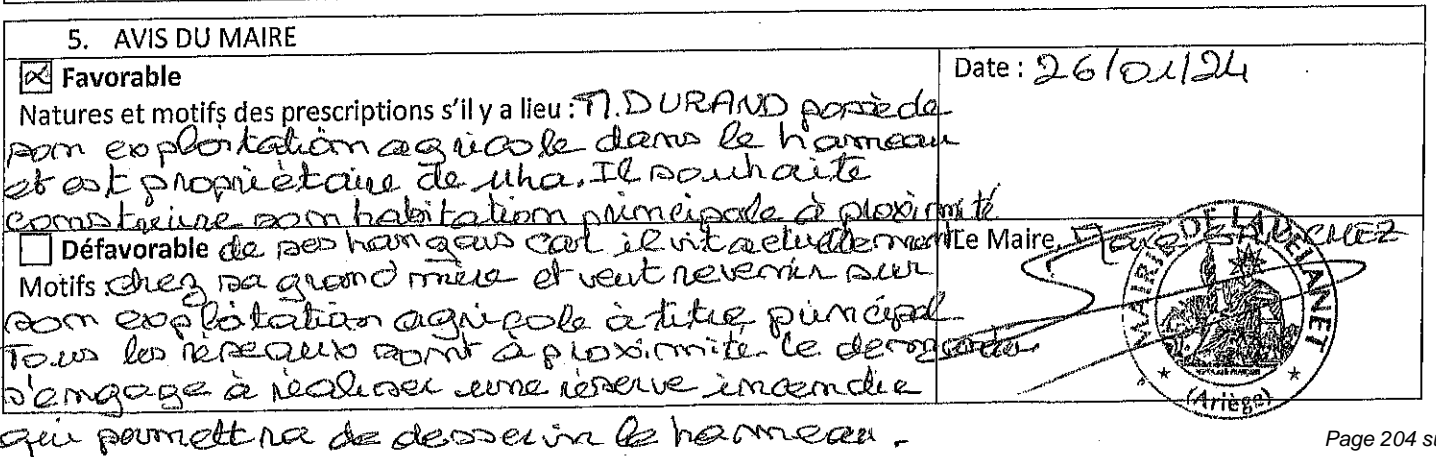 5. AVIS DU MAIRE
☒ Favorable
Date : 26/01/24
Natures et motifs des prescriptions s'il y a lieu : M. DURAND possède
son exploitation agricole dans le hameau
et est propriétaire de 4ha. Il souhaite
construire son habitation principale à proximité
☐ Défavorable de ses hangars car il vit actuellement
Le Maire,
SANCHEZ
Motifs : chez sa grand mère et veut revenir sur
son exploitation agricole à titre principal
Tous les réseaux sont à proximité. Le demandeur
s'engage à réaliser une réserve incendie
qui permettra de desservir le hameau.
MAIRIE DE LAVELANET
(Ariège)
Page 204 su